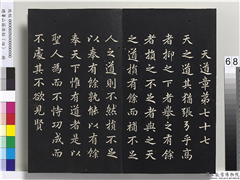 天道章第七十七
天之道其猶張弓乎高
者抑之下者舉之有餘
者損之不足者與之天
之道損有餘而補不足
人之道則不然損不足
以奉有餘孰能以有餘
奉天下惟有道者是以
聖人為而不恃功成而
不處其不欲見賢
68